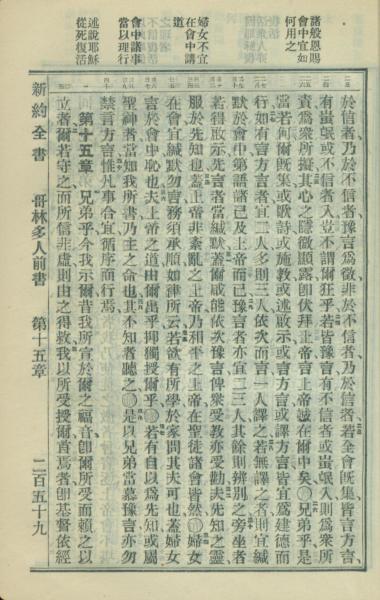 諸般恩賜
會中宜如
何用之
婦女不宜
在會中講
道
會中議事
當以理行
述說耶穌
從死復活
於信者乃於不信者豫言爲徵非於不信者乃於信者若全會既集皆言方言
有蚩氓或不信者入豈不謂爾狂乎若皆豫言有不信者或蚩氓入則爲衆所
責爲衆所擬其心之隱微顯露卽伏拜上帝言上帝誠在爾中矣兄弟乎是
當若何爾既集或歌詩或施教或述啟示或言方言或譯方言皆宜爲建德而
行如有言方言者宜二人多則三人依次而言一人譯之若無譯之者則宜緘
默於會中第語諸己及上帝而已豫言者亦宜二三人其餘則辨別之旁坐者
若得啟示先言者當緘默蓋爾咸能依次豫言俾衆受教亦受勸夫先知之靈
服於先知也蓋上帝非紊亂之上帝乃和平之上帝在聖徒諸會皆然婦女
在會宜緘默勿言務須承順如律所云若欲有所學於家問其夫可也蓋婦女
言於會中恥也夫上帝之道由爾出乎抑獨授爾乎若有自以爲先知或屬
聖神者當知我所書乃主之命也其不知者聽之是以兄弟當慕豫言亦勿
禁言方言惟凡事合宜循序而行焉
第十五章 兄弟乎今我示爾昔我所宣於爾之福音卽爾所受而賴之以
立者爾若守之而所信非虛則由之得救我以所受授爾首焉者卽基督依經
新約全書 哥林多人前書 第十五章 二百五十九